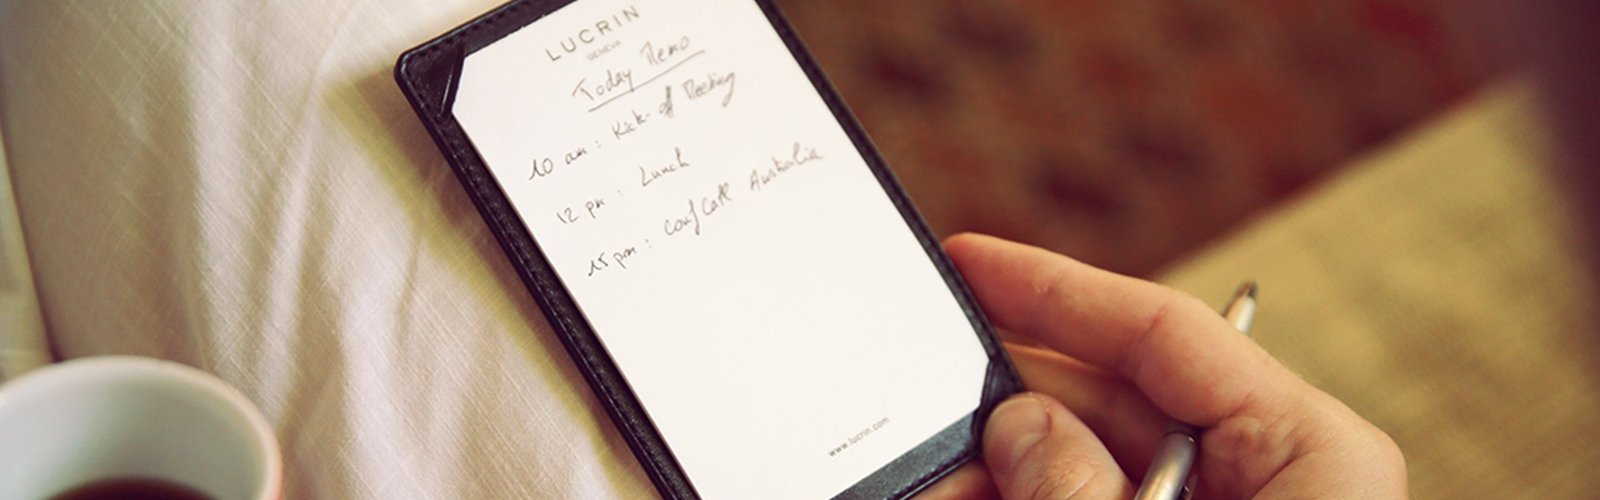 LUCRIN
GENEVA
Today Memo
10 am : Kick-off Meeting
12 pm : Lunch
15 pm : Conf Call Australia
www.lucrin.com